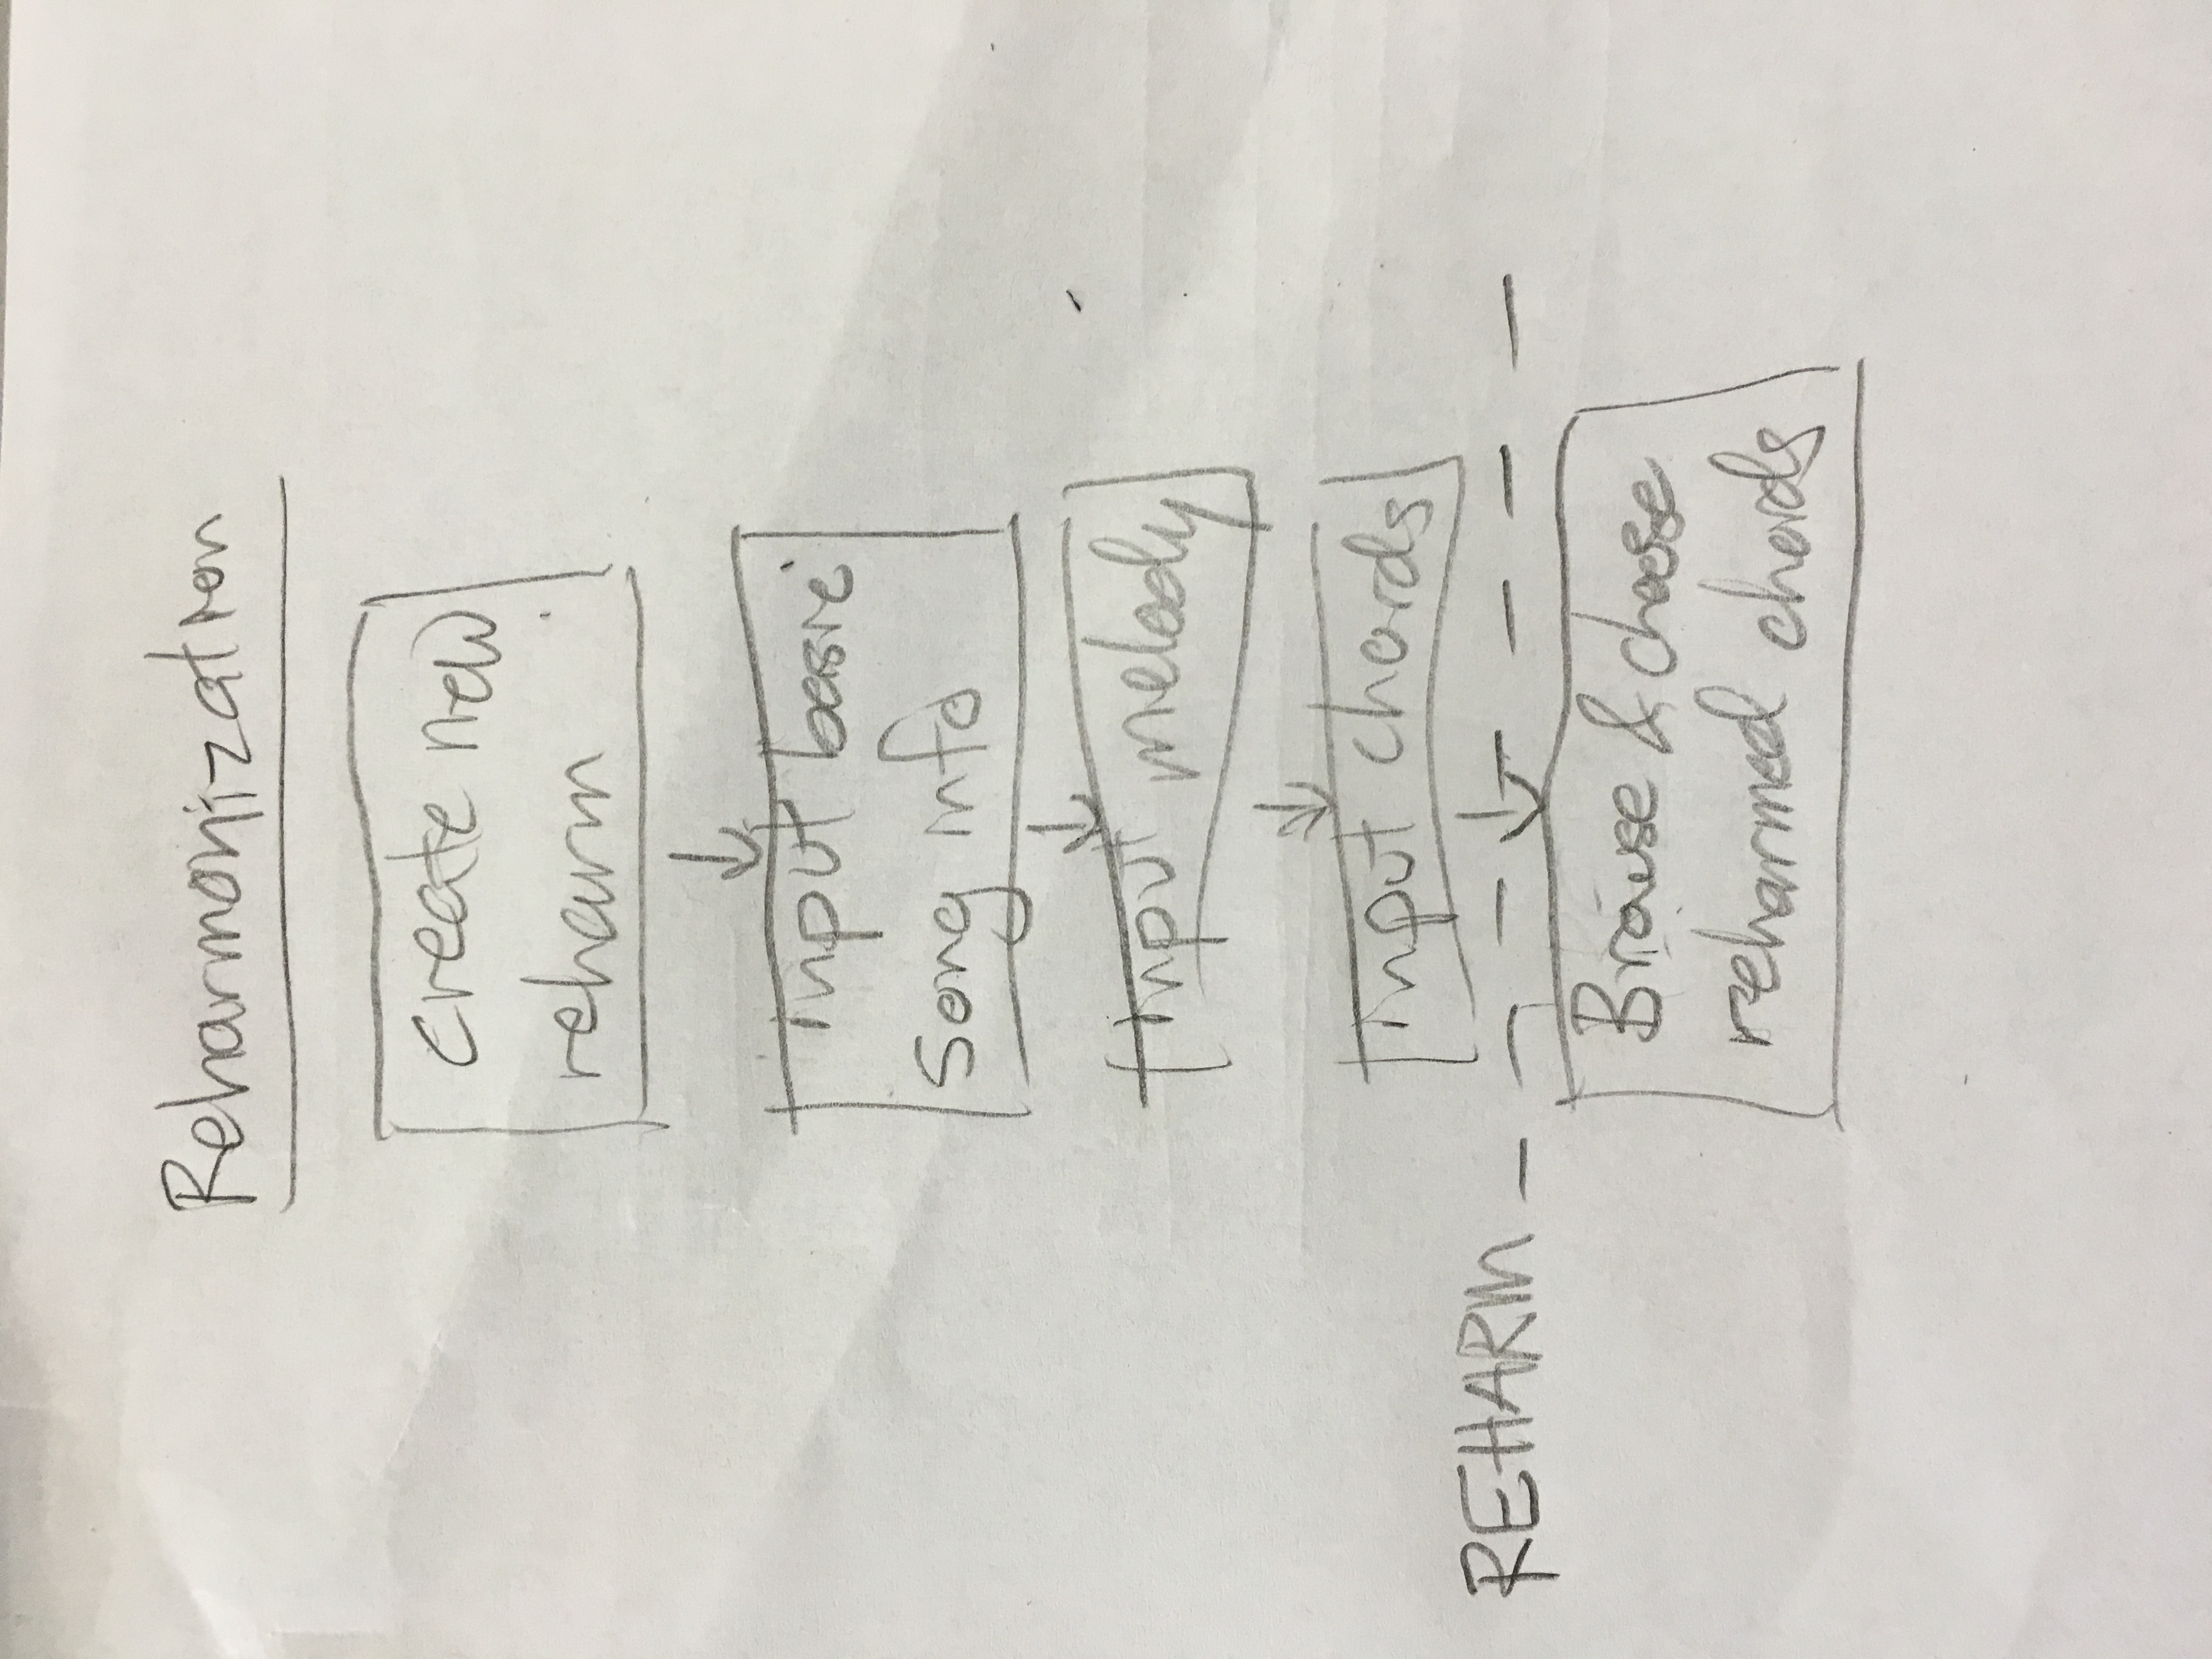 Reharmonization
create new
reharm
input basic
song info
input melody
input chords
REHARM
Browse & choose
reharmed chords